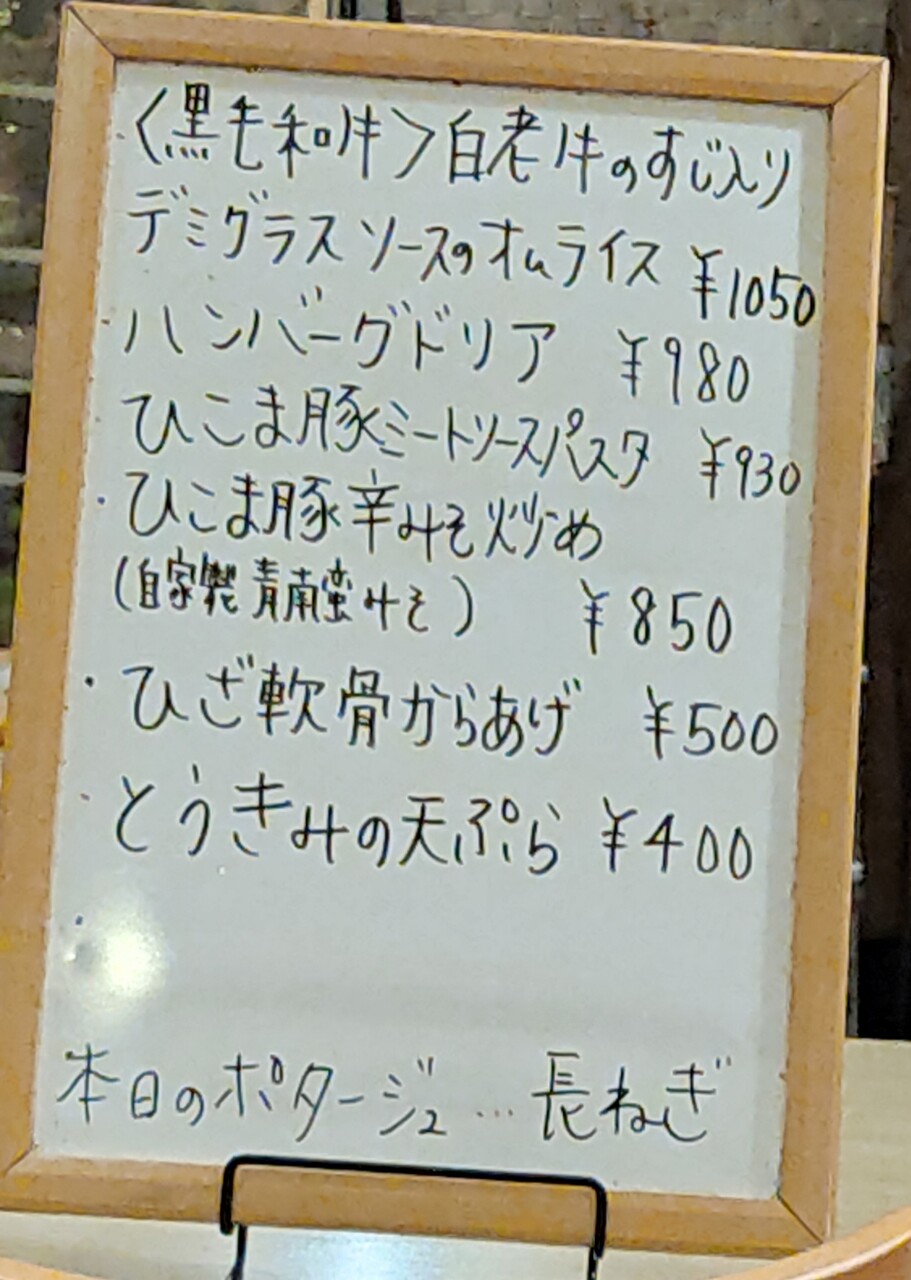 〈黒毛和牛〉白老牛のすじ入り
デミグラスソースのオムライス ¥1050
・ハンバーグドリア ¥980
ひこま豚ミートソースパスタ ¥930
・ひこま豚辛みそ炒め
(自家製青南蛮みそ) ¥850
・ひざ軟骨からあげ ¥500
・とうきみの天ぷら ¥400
・
本日のポタージュ…長ねぎ